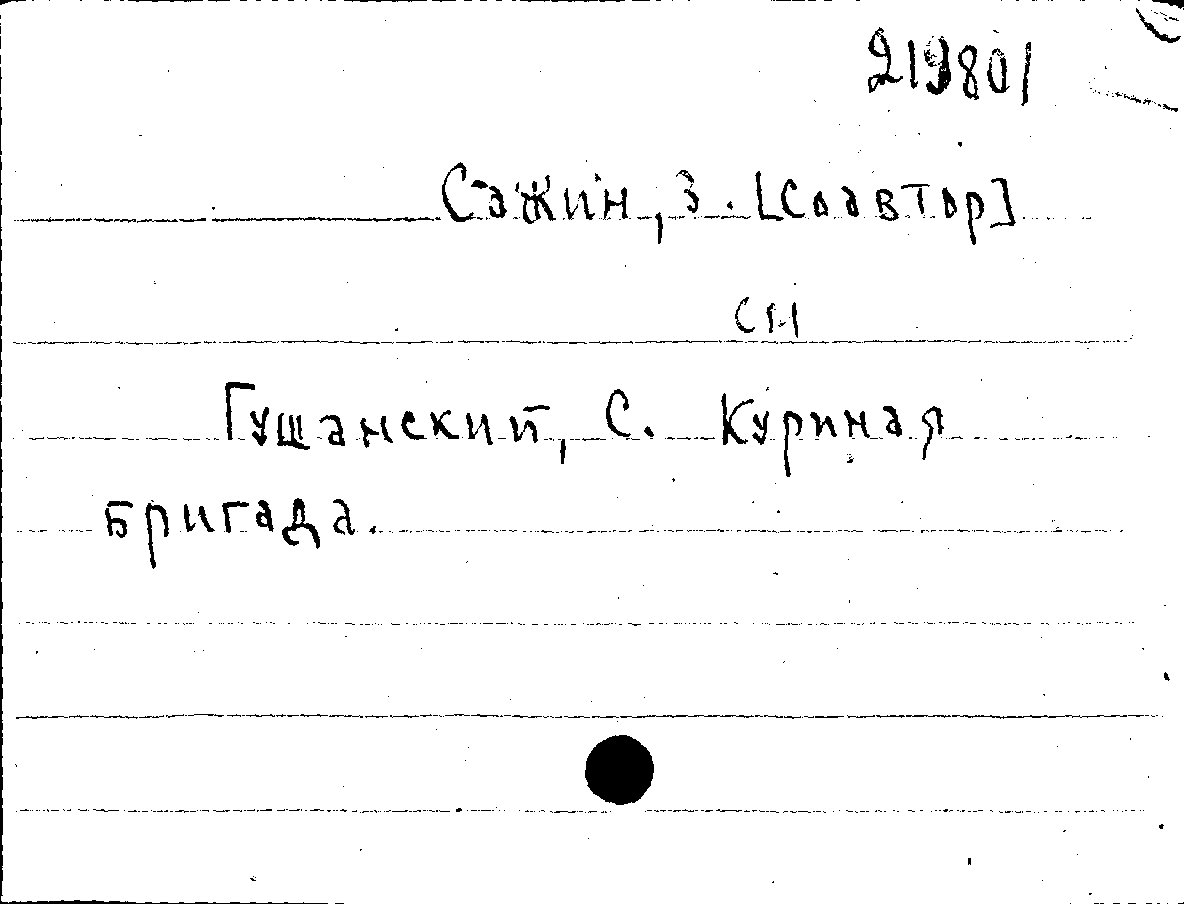 219801
Сажин, З. [соавтор]
см
Гушанский, С. Куриная
бригада.